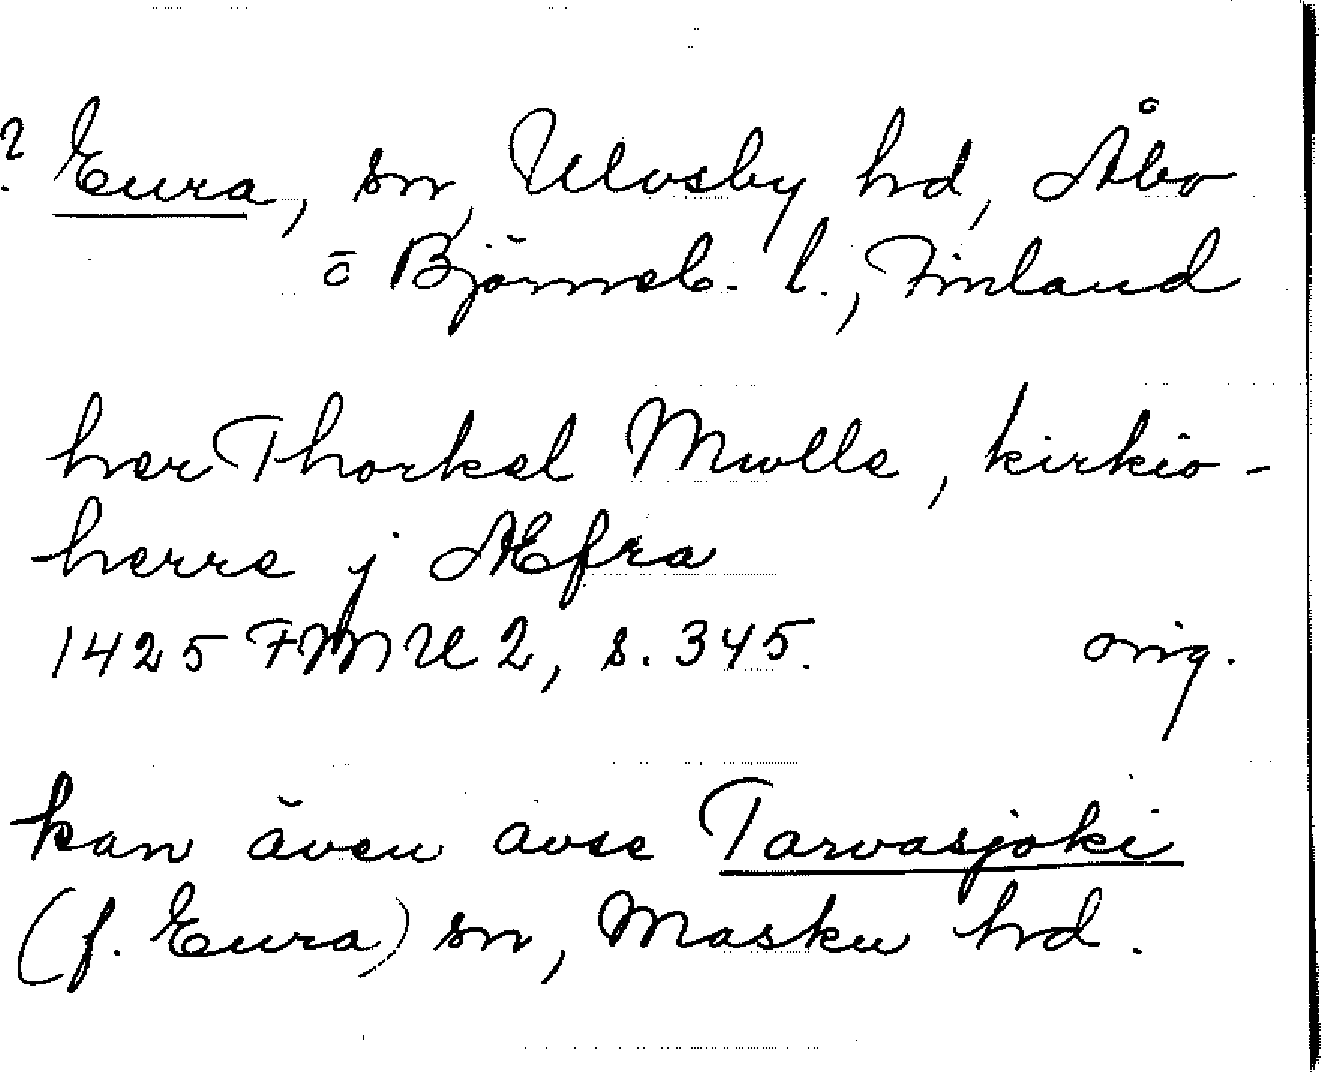 ? Eura, sn, Ulvsby hd, Åbo
o Björneb. l., Finland
her Thorkel Mwlle, kirkio-
herre j Æfra
1425 FMU 2, s. 345. orig.
kan även avse Tarvasjoki
(f. Eura) sn, Masku hd.